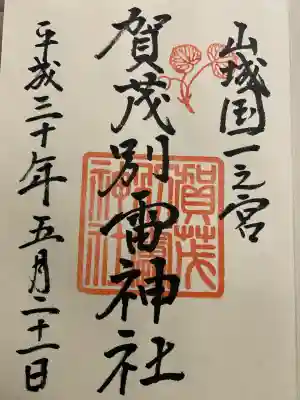 山城国一之宮
賀茂別雷神社
平成三十年五月二十一日
賀茂
神社